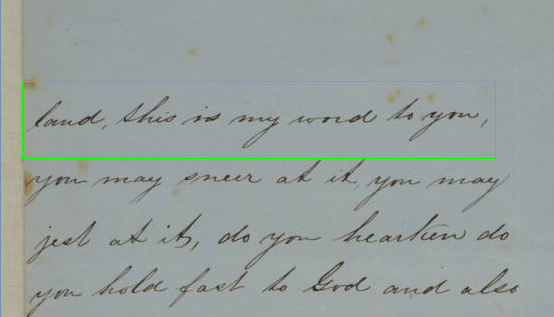 land, this is my word to you,
you may sneer at it, you may
jest at it, do you hearken do
you hold fast to God and also